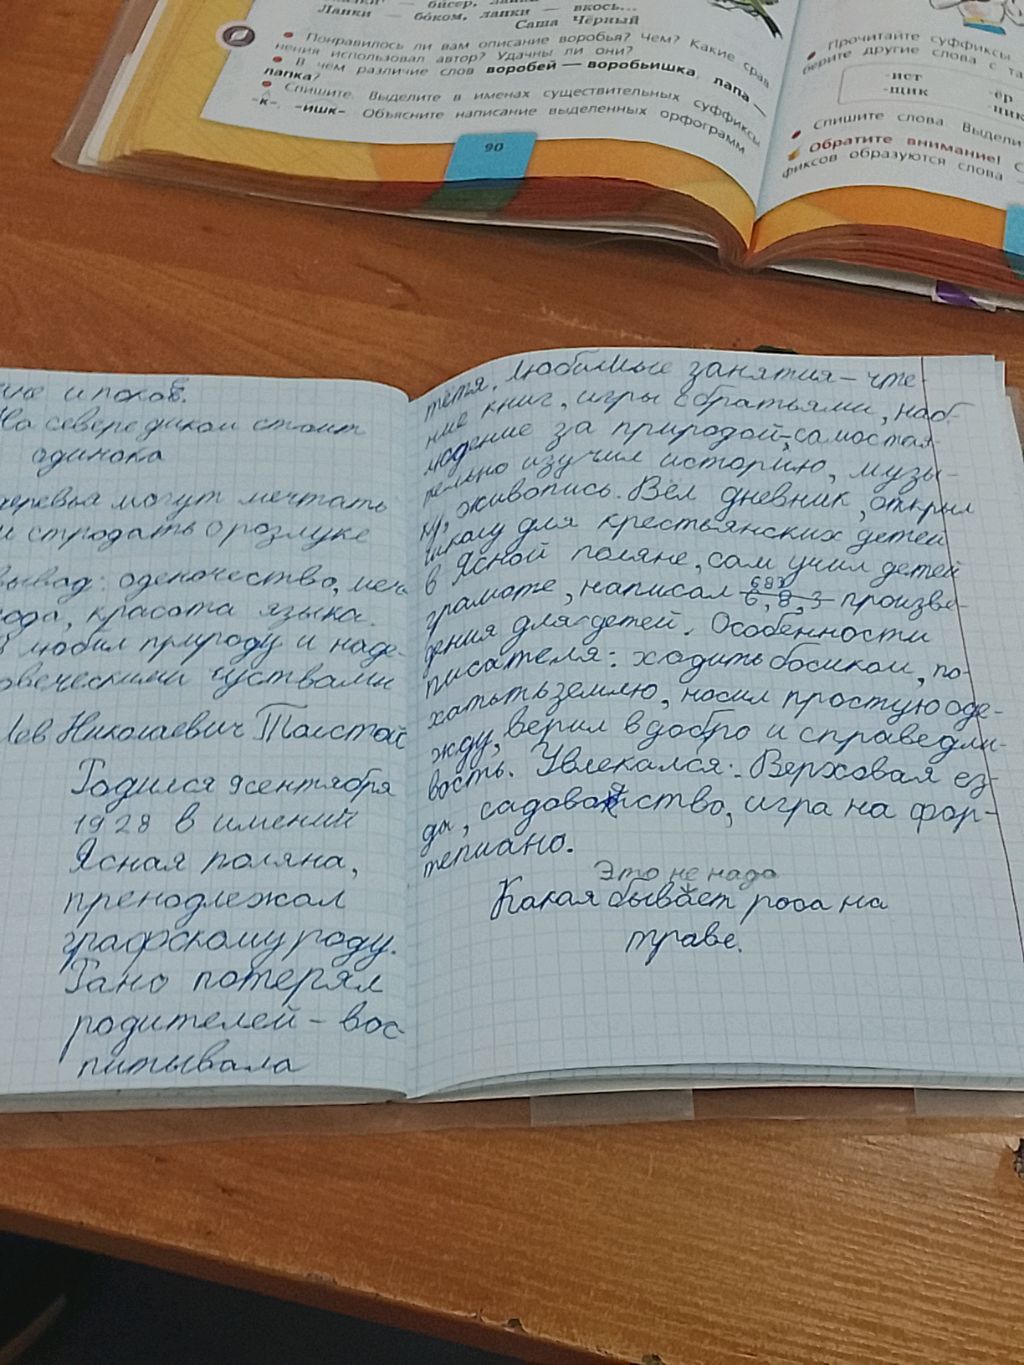 бисер,
Лапки — боком, лапки — вкось...
Саша Чёрный
• Понравилось ли вам описание воробья? Чем? Какие срав
нения использовал автор? Удачны ли они?
• В чём различие слов воробей — воробьишка, лапа —
лапка?
• Спишите. Выделите в именах существительных суффиксы
-к-, -ишк- Объясните написание выделенных орфограмм
90
• Прочитайте суффиксы
берите другие слова с та
-ист
-ёр
-щик
-ник
• Спишите слова. Выдели
Обратите внимание! С
фиксов образуются слова —
и покоя.
На севере диком стоит
одиноко
деревья могут мечтать
и стродать о розлуке
вывад: оденочество,
красота языка.
любил природу и наде-
овеческими чуствами
Лев Николаевич Толстой
Родился 9 сентября
1928 в имений
Ясная поляна,
пренодлежал
графскому роду.
Рано потерял
родителей – вос
питывала
тётя. Любимые занятия – чте-
ние книг, игры с братьями, наб-
людение за природой, самостоя-
тельно изучил историю, музы-
ку, живопись. Вёл дневник, открыл
школу для крестьянских детей
в Ясной поляне, сам учил детей
грамоте, написал 687 6, 8, 3 произве-
дения для детей. Особенности
писателя: ходить босиком, по-
хатьть землю, носил простую оде-
жду, верил в добро и справедли-
вость. Увлекался: Верховая ез-
да, садоводство, игра на фор-
тепиано.
Это не надо
Какая бывает роса на
траве.